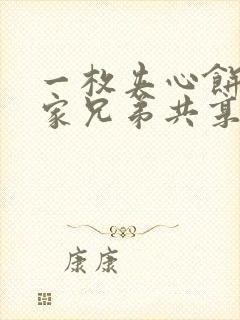 一枚夹心饼
家兄弟共享
康康